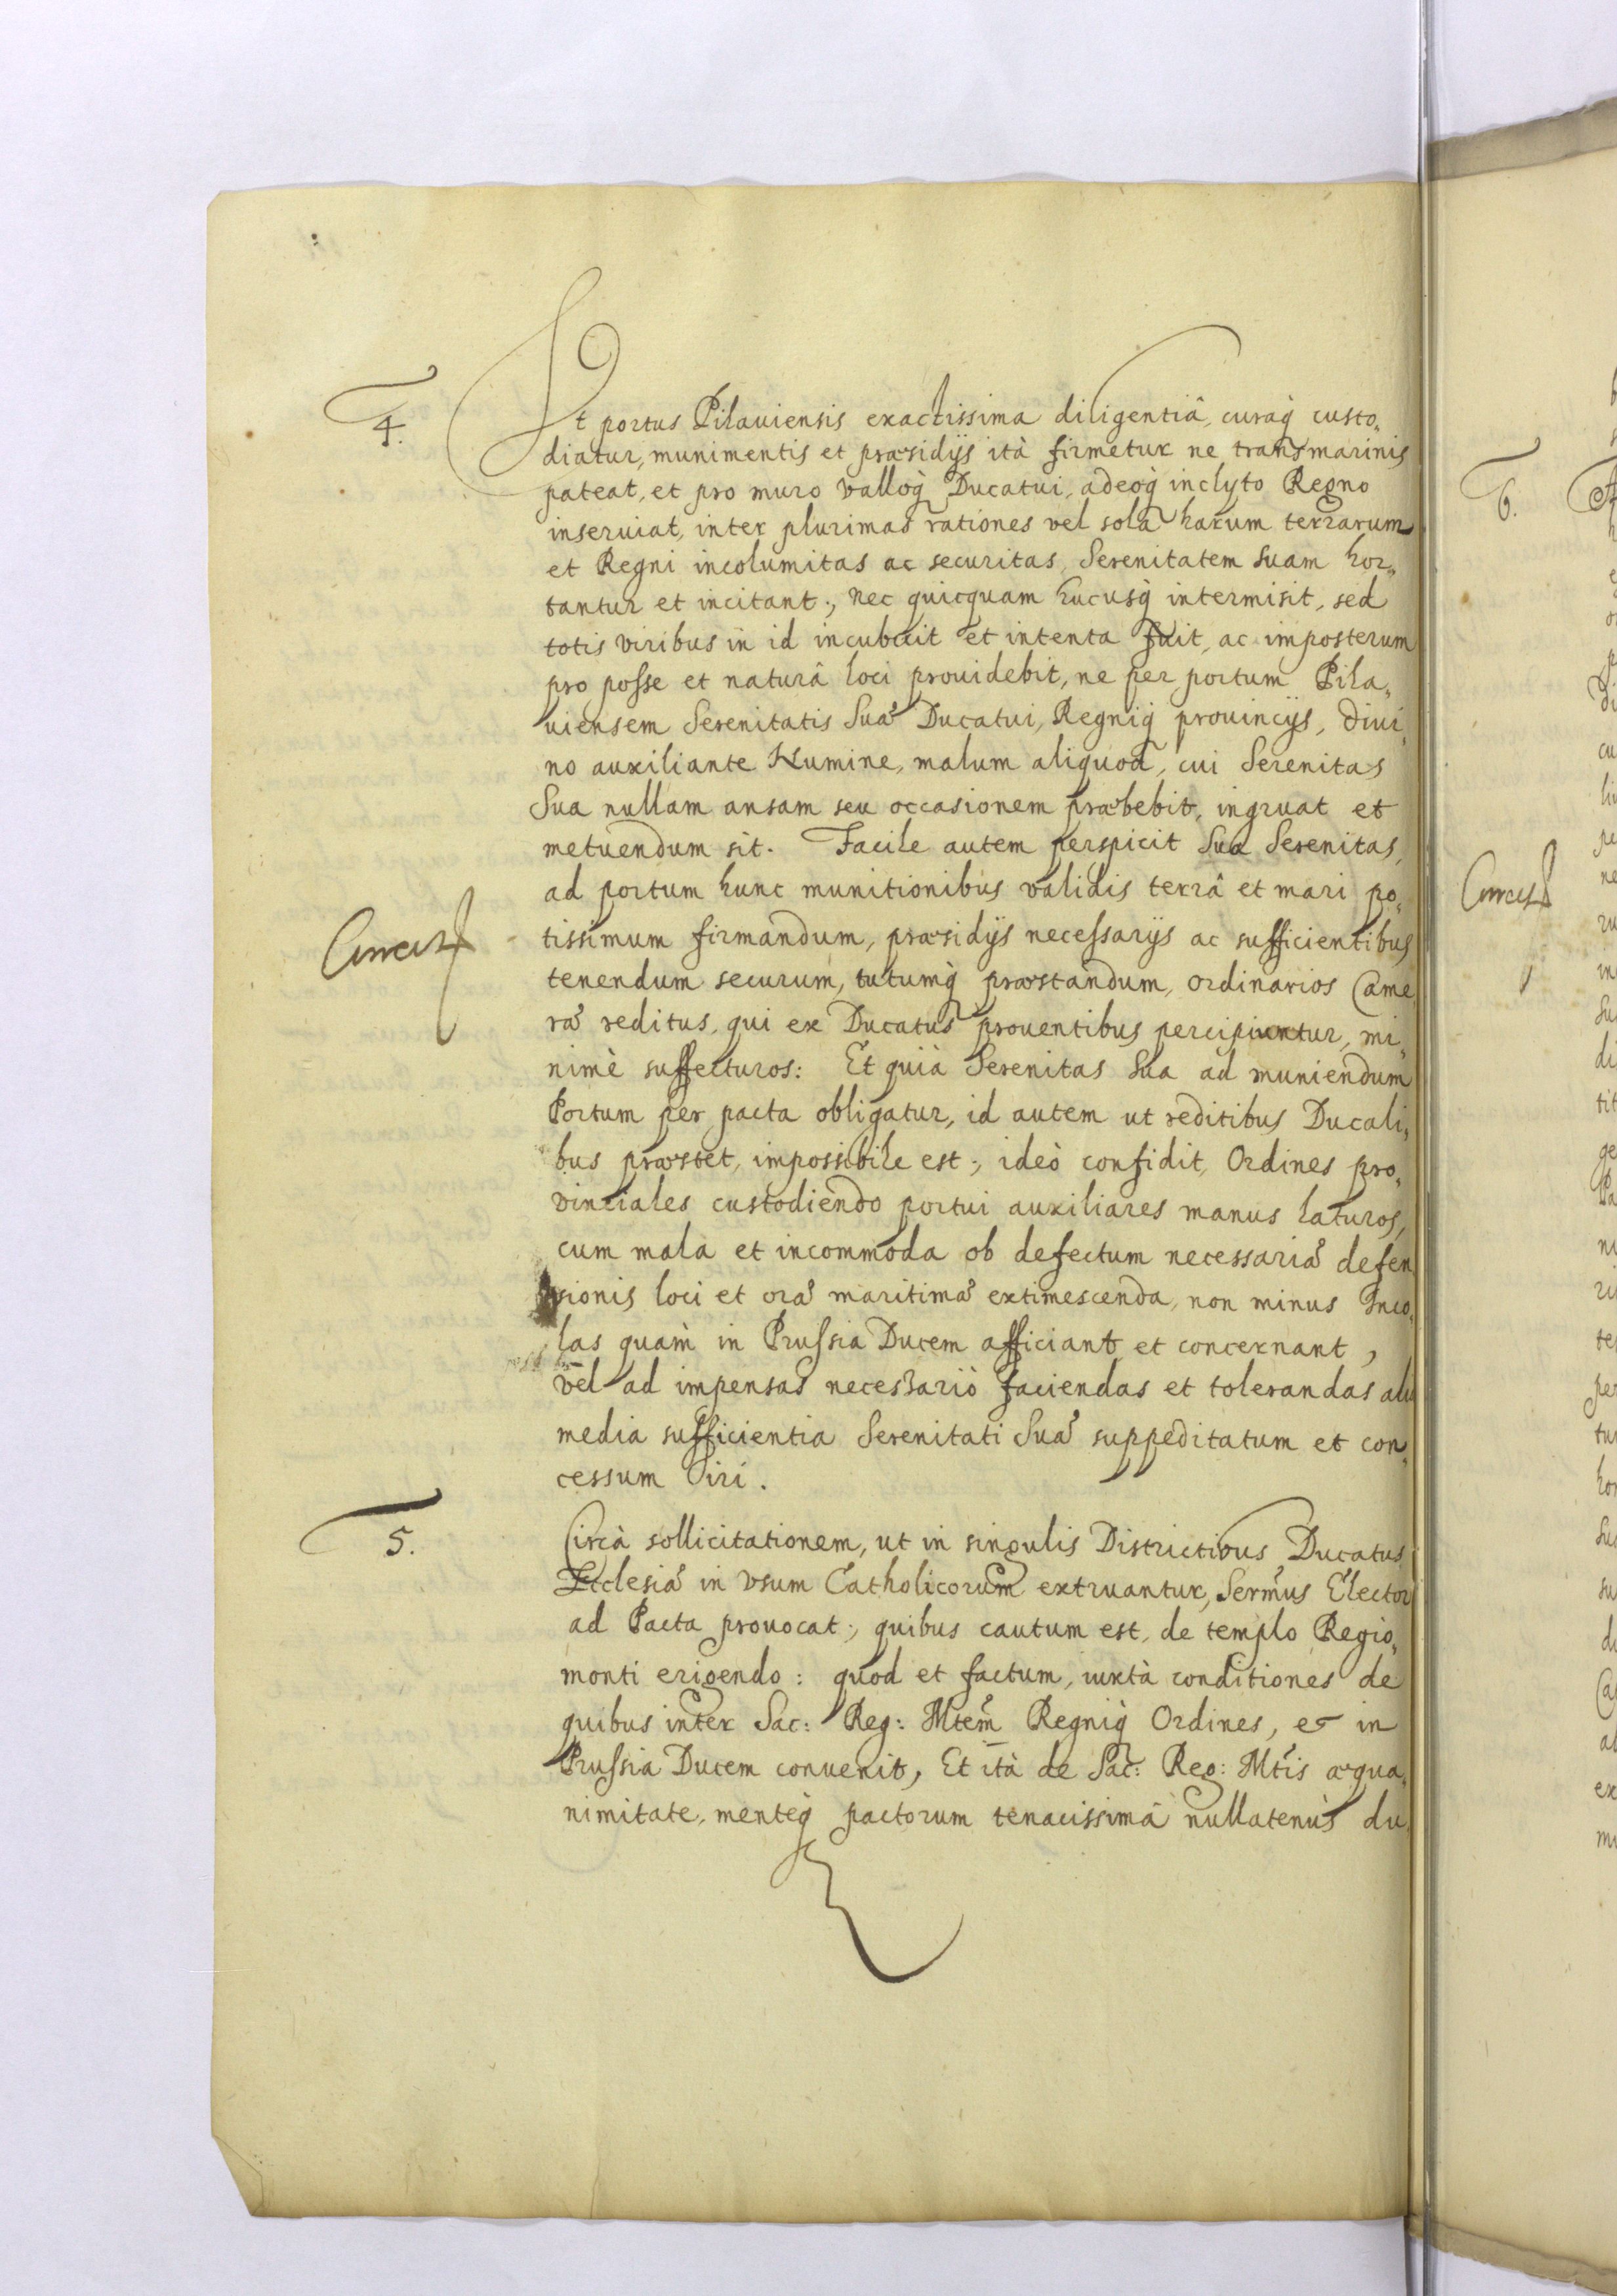 4.
Ut portus Pilauiensis exactissima diligentiâ, curaq́ custo„
diatur, munimentis et præsidijs ità firmetur ne transmarinis
pateat, et pro muro valloq́ Ducatui, adeoq́ inclyto Regno
inseruiat, inter plurimas rationes vel sola harum terrarum
et Regni incolumitas ac securitas, Serenitatem Suam hor„
tantur et incitant; nec quicquam hucusq́ intermisit, sed
totis viribus in id incubuit et intenta fuit, ac imposterum
pro posse et naturâ loci prouidebit, ne per portum Pila„
uiensem Serenitatis Suæ Ducatui, Regniq́ prouincijs, diui„
no auxiliante Numine, malum aliquod, cui Serenitas
Sua nullam ansam seu occasionem præbebit, ingruat et
metuendum sit. Facile autem perspicit Sua Serenitas,
ad portum hunc munitionibus validis terrâ et mari po„
tissimum firmandum, præsidijs necessarijs ac sufficientibus
tenendum securum, tutumq́ præstandum, ordinarios Came„
ræ reditus, qui ex Ducatus prouentibus percipiuntur, mi„
nimè suffecturos: Et quia Serenitas Sua ad muniendum
Portum per pacta obligatur, id autem ut reditibus Ducali„
bus præstet, impossibile est; ideò confidit, Ordines pro„
vinciales custodiendo portui auxiliares manus laturos,
cum mala et incommoda ob defectum necessariæ defen„
sionis loci et oræ maritimæ extimescenda, non minus Inco„
las quam in Prussia Ducem afficiant et concernant,
vel ad impensas necessariò faciendas et tolerandas alia
media sufficientia Serenitati Suæ suppeditatum et con„
cessum iri.
5.
Circà sollicitationem, ut in singulis Districtibus Ducatus
Ecclesiæ in vsum Catholicorum extruantur, Sermus Elector
ad Pacta prouocat; quibus cautum est, de templo Regio„
monti erigendo: quod et factum, iuxtà conditiones de
quibus inter Sac: Reg: Mtem Regniq́ Ordines, et in
Prussia Ducem conuenit, Et ità de Sac: Reg: Mtis æqua„
nimitate, menteq́ pactorum tenacissimâ nullatenùs du„
6.